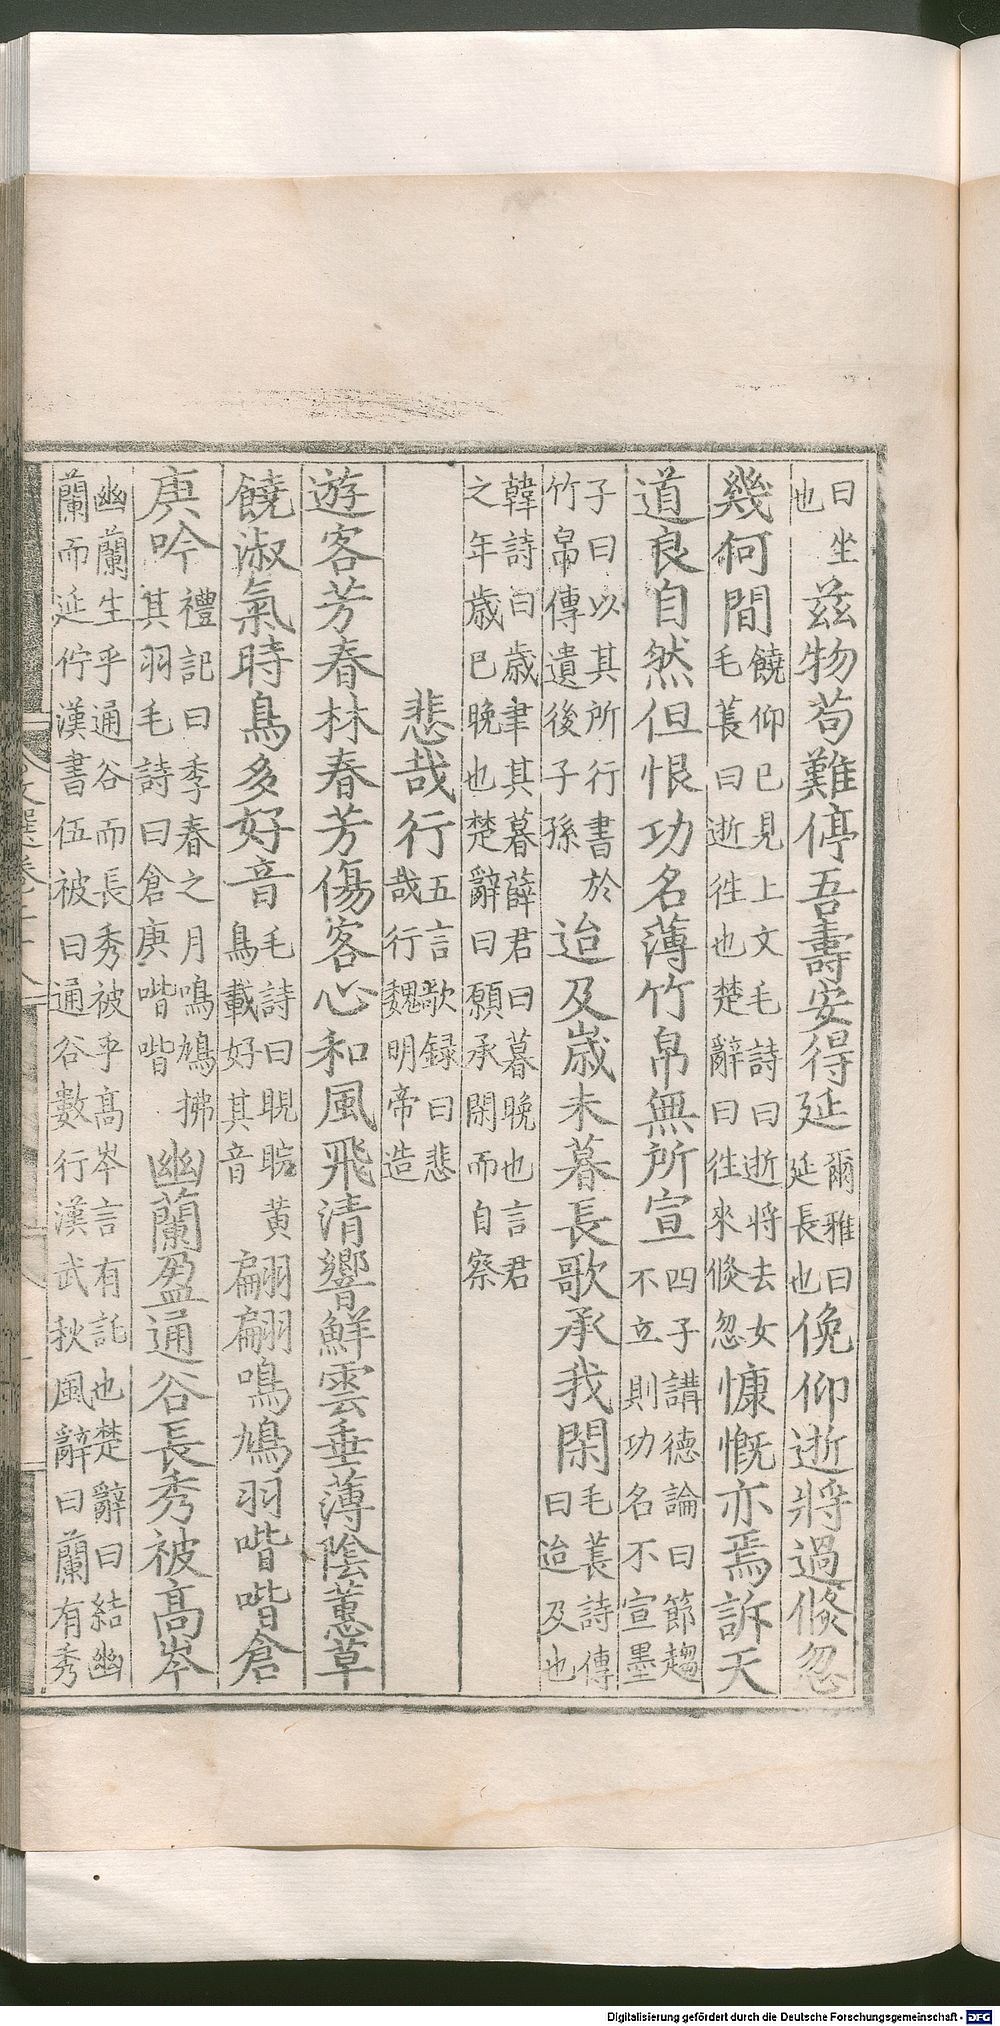 曰坐也茲物苟難停吾壽安得延爾雅曰延長也俛仰逝將過倐忽
幾何間饒仰已見上文毛詩曰逝將去女毛萇曰逝徃也楚辭曰徃來倐忽慷慨亦焉訴天
道良自然但恨功名薄竹帛無所宣四子講德論曰節趨不立則功名不宣墨
子曰以其所行書於竹帛傳遺後子孫迨及歲未暮長歌承我閑毛萇詩傳曰迨及也
韓詩曰歲聿其暮薛君曰暮晚也言君之年歲已晚也楚辭曰願承閑而自察
悲哉行五言歌録曰悲哉行魏明帝造
遊客芳春林春芳傷客心和風飛清響鮮雲垂薄陰蕙草
饒淑氣時鳥多好音毛詩曰睍睆黃鳥載好其音翩翩鳴鳩羽喈喈倉
庚吟禮記曰季春之月鳴鳩拂其羽毛詩曰倉庚喈喈幽蘭盈通谷長秀被高岑
幽蘭生乎通谷而長秀被乎高岑言有託也楚辭曰結幽蘭而延佇漢書伍被曰通谷數行漢武秋風辭曰蘭有秀
Digitalisierung gefördert durch die Deutsche Forschungsgemeinschaft - DFG